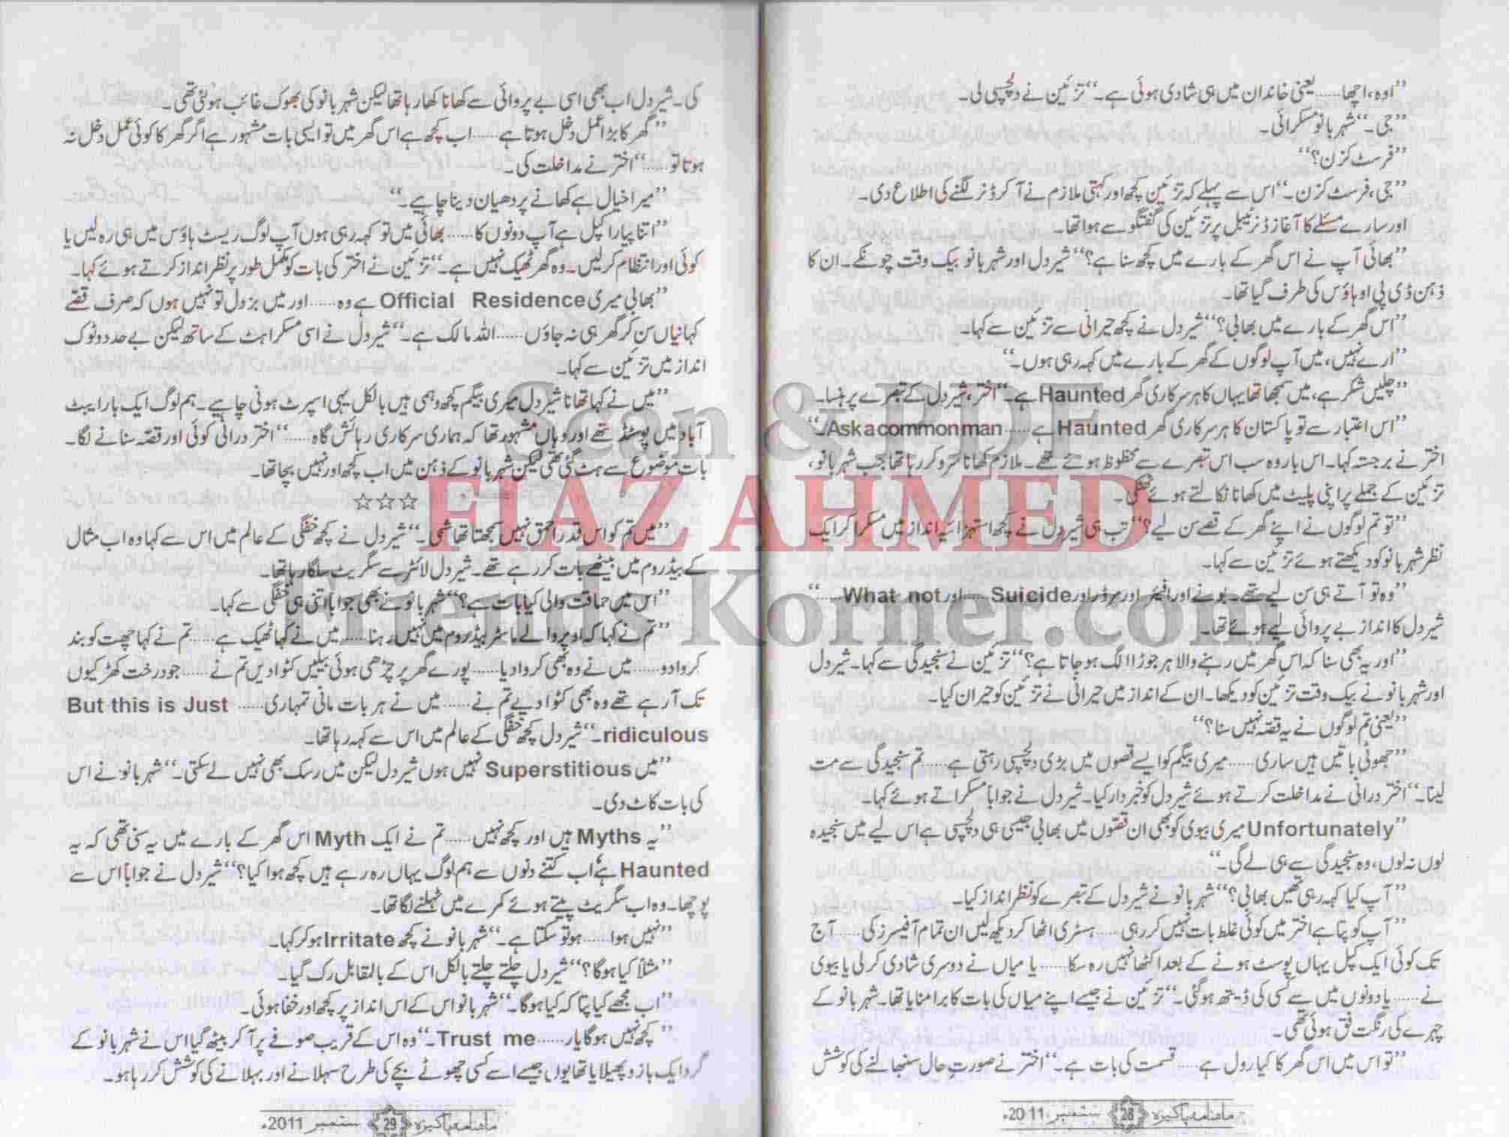 ”اوہ، اچھا...... یعنی خاندان میں ہی شادی ہوئی ہے۔“ تزئین نے دلچسپی لی۔
”جی۔“ شہربانو مسکرائی۔
”فرسٹ کزن؟“
”جی، فرسٹ کزن۔“ اس سے پہلے کہ تزئین کچھ اور کہتی ملازم نے آ کر ڈنر لگنے کی اطلاع دی۔
اور سارے مسئلے کا آغاز ڈنر ٹیبل پر تزئین کی گفتگو سے ہوا تھا۔
”بھائی آپ نے اس گھر کے بارے میں کچھ سنا ہے؟“ شیردل اور شہربانو بیک وقت چونکے۔ ان کا
ذہن ڈی پی او ہاؤس کی طرف گیا تھا۔
”اس گھر کے بارے میں بھابی؟“ شیردل نے کچھ حیرانی سے تزئین سے کہا۔
”ارے نہیں، میں آپ لوگوں کے گھر کے بارے میں کہہ رہی ہوں۔“
”چلیں شکر ہے، میں سمجھا تھا یہاں کا ہر سرکاری گھر Haunted ہے۔“ اختر، شیردل کے تبصرے پر ہنسا۔
”اس اعتبار سے تو پاکستان کا ہر سرکاری گھر Haunted ہے...... Ask a common man۔“
اختر نے برجستہ کہا۔ اس بار وہ سب اس تبصرے سے محظوظ ہوئے تھے۔ ملازم کھانا سرو کر رہا تھا جب شہربانو،
تزئین کے جملے پر اپنی پلیٹ میں کھانا نکالتے ہوئے ٹھٹکی۔
”تو تم لوگوں نے اپنے گھر کے قصے سن لیے؟“ تب ہی شیردل نے کچھ استہزائیہ انداز میں مسکرا کر ایک
نظر شہربانو کو دیکھتے ہوئے تزئین سے کہا۔
”وہ تو آتے ہی سن لیے تھے۔ بونے اور افیئر اور مرڈر اور Suicide اور What not......“
شیردل کا انداز بے پروائی لیے ہوئے تھا۔
”اور یہ بھی سنا کہ اس گھر میں رہنے والا ہر جوڑا الگ ہو جاتا ہے؟“ تزئین نے سنجیدگی سے کہا۔ شیردل
اور شہربانو نے بیک وقت تزئین کو دیکھا۔ ان کے انداز میں حیرانی نے تزئین کو حیران کیا۔
”یعنی تم لوگوں نے یہ قصہ نہیں سنا؟“
”جھوٹی باتیں ہیں ساری...... میری بیگم کو ایسے قصوں میں بڑی دلچسپی رہتی ہے...... تم سنجیدگی سے مت
لینا۔“ اختر درانی نے مداخلت کرتے ہوئے شیردل کو خبردار کیا۔ شیردل نے جواباً مسکراتے ہوئے کہا۔
”Unfortunately میری بیوی کو بھی ان قصوں میں بھابی جیسی ہی دلچسپی ہے اس لیے میں سنجیدہ
لوں نہ لوں، وہ سنجیدگی سے ہی لے گی۔“
”آپ کیا کہہ رہی تھیں بھابی؟“ شہربانو نے شیردل کے تبصرے کو نظر انداز کیا۔
”آپ کو پتا ہے اختر میں کوئی غلط بات نہیں کر رہی...... ہسٹری اٹھا کر دیکھ لیں ان تمام آفیسرز کی...... آج
تک کوئی ایک کپل یہاں پوسٹ ہونے کے بعد اکٹھا نہیں رہ سکا...... یا میاں نے دوسری شادی کر لی یا بیوی
نے...... یا دونوں میں سے کسی کی ڈیتھ ہو گئی۔“ تزئین نے جیسے اپنے میاں کی بات کا برا منایا تھا۔ شہربانو کے
چہرے کی رنگت فق ہوئی تھی۔
”تو اس میں اس گھر کا کیا رول ہے...... قسمت کی بات ہے۔“ اختر نے صورتِ حال سنبھالنے کی کوشش
ماہنامہ پاکیزہ 28 ستمبر 2011ء
کی۔ شیردل اب بھی اسی بے پروائی سے کھانا کھا رہا تھا لیکن شہربانو کی بھوک غائب ہو گئی تھی۔
”گھر کا بڑا عمل دخل ہوتا ہے...... اب کچھ ہے اس گھر میں تو ایسی بات مشہور ہے اگر گھر کا کوئی عمل دخل نہ
ہوتا تو......“ اختر نے مداخلت کی۔
”میرا خیال ہے کھانے پر دھیان دینا چاہیے۔“
”اتنا پیارا کپل ہے آپ دونوں کا...... بھائی میں تو کہہ رہی ہوں آپ لوگ ریسٹ ہاؤس میں ہی رہ لیں یا
کوئی اور انتظام کر لیں۔ وہ گھر ٹھیک نہیں ہے۔“ تزئین نے اختر کی بات کو مکمل طور پر نظر انداز کرتے ہوئے کہا۔
”بھابی میری Official Residence ہے وہ...... اور میں بزدل تو نہیں ہوں کہ صرف قصے
کہانیاں سن کر گھر ہی نہ جاؤں...... اللہ مالک ہے۔“ شیردل نے اسی مسکراہٹ کے ساتھ لیکن بے حد دوٹوک
انداز میں تزئین سے کہا۔
”میں نے کہا تھا نا شیردل میری بیگم کچھ وہمی ہیں بالکل یہی اسپرٹ ہونی چاہیے۔ ہم لوگ ایک بار ایبٹ
آباد میں پوسٹڈ تھے اور وہاں مشہور تھا کہ ہماری سرکاری رہائش گاہ......“ اختر درانی کوئی اور قصہ سنانے لگا۔
بات موضوع سے ہٹ گئی تھی لیکن شہربانو کے ذہن میں اب کچھ اور نہیں بچا تھا۔
☆☆☆
”میں تم کو اس قدر احمق نہیں سمجھتا تھا شہبی۔“ شیردل نے کچھ خفگی کے عالم میں اس سے کہا وہ اب مثال
کے بیڈروم میں بیٹھے بات کر رہے تھے۔ شیردل لائٹر سے سگریٹ سلگا رہا تھا۔
”اس میں حماقت والی کیا بات ہے؟“ شہربانو نے بھی جواباً اتنی ہی خفگی سے کہا۔
”تم نے کہا کہ اوپر والے ماسٹر بیڈروم میں نہیں رہنا...... میں نے کہا ٹھیک ہے...... تم نے کہا چھت کو بند
کروا دو...... میں نے وہ بھی کروا دیا...... پورے گھر پر چڑھی ہوئی بیلیں کٹوا دیں تم نے...... جو درخت کھڑکیوں
تک آ رہے تھے وہ بھی کٹوا دیے تم نے...... میں نے ہر بات مانی تمہاری...... But this is Just
ridiculous۔“ شیردل کچھ خفگی کے عالم میں اس سے کہہ رہا تھا۔
”میں Superstitious نہیں ہوں شیردل لیکن میں رسک بھی نہیں لے سکتی۔“ شہربانو نے اس
کی بات کاٹ دی۔
”یہ Myths ہیں اور کچھ نہیں...... تم نے ایک Myth اس گھر کے بارے میں یہ سنی تھی کہ یہ
Haunted ہے اب کتنے دنوں سے ہم لوگ یہاں رہ رہے ہیں کچھ ہوا کیا؟“ شیردل نے جواباً اس سے
پوچھا۔ وہ اب سگریٹ پیتے ہوئے کمرے میں ٹہلنے لگا تھا۔
”نہیں ہوا...... ہو تو سکتا ہے۔“ شہربانو نے کچھ Irritate ہو کر کہا۔
”مثلاً کیا ہوگا؟“ شیردل چلتے چلتے بالکل اس کے بالمقابل رک گیا۔
”اب مجھے کیا پتا کہ کیا ہوگا۔“ شہربانو اس کے اس انداز پر کچھ اور خفا ہوئی۔
”کچھ نہیں ہوگا یار...... Trust me۔“ وہ اس کے قریب صوفے پر آ کر بیٹھ گیا اس نے شہربانو کے
گرد ایک بازو پھیلایا تھا یوں جیسے اسے کسی چھوٹے بچے کی طرح سہلانے اور بہلانے کی کوشش کر رہا ہو۔
ماہنامہ پاکیزہ 29 ستمبر 2011ء
Scan & PDF
FIAZ AHMED
Friends Korner.com